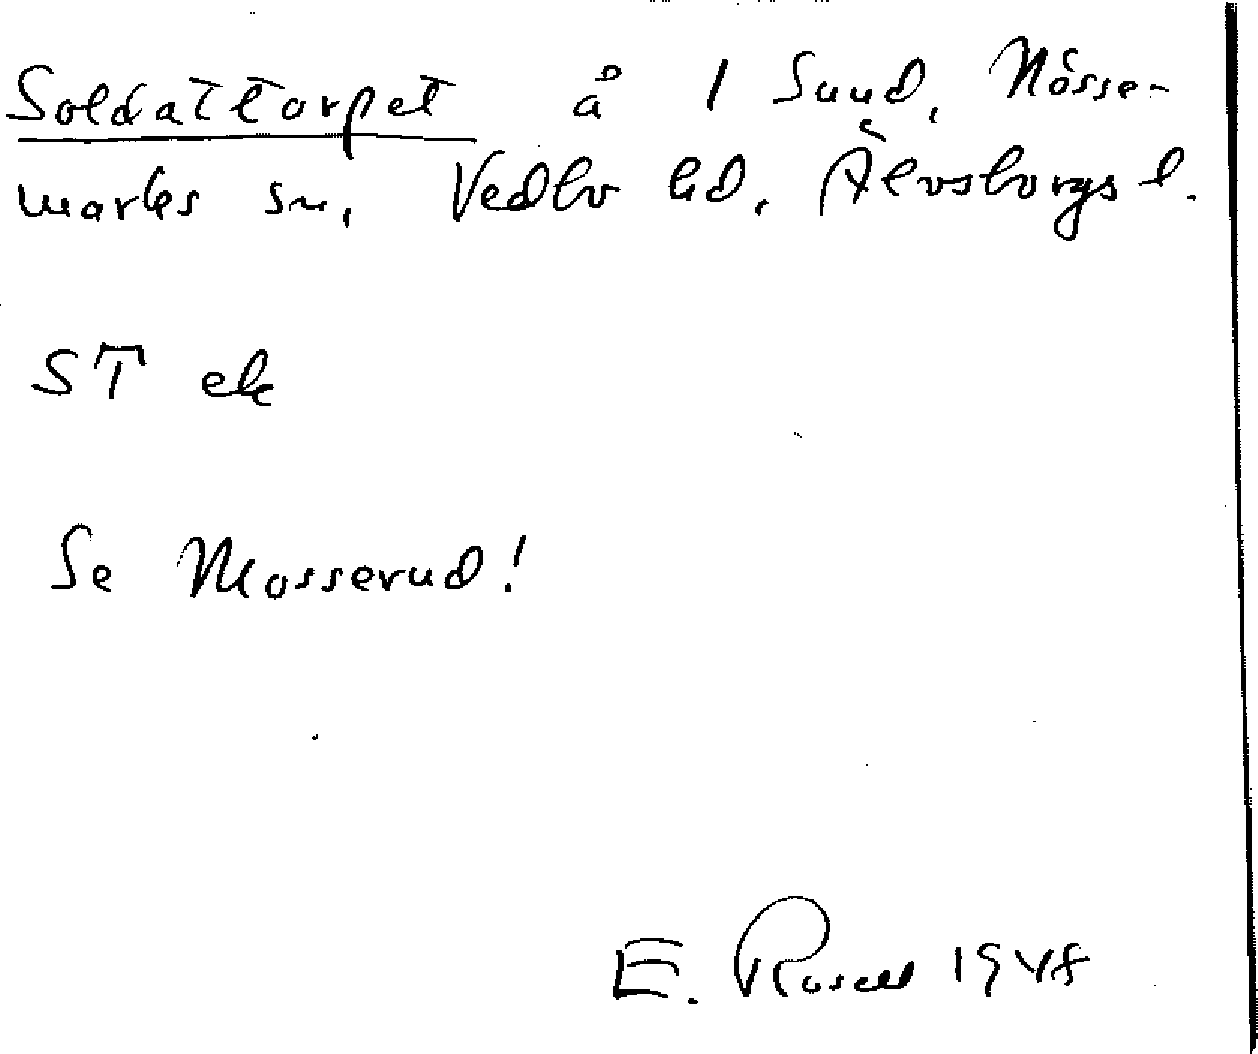 Soldattorpet å 1 Sund, Nösse-
marks sn, Vedbo hd, Älvsborgs l.
ST ek
Se Mosserud!
E. Rosell 1948